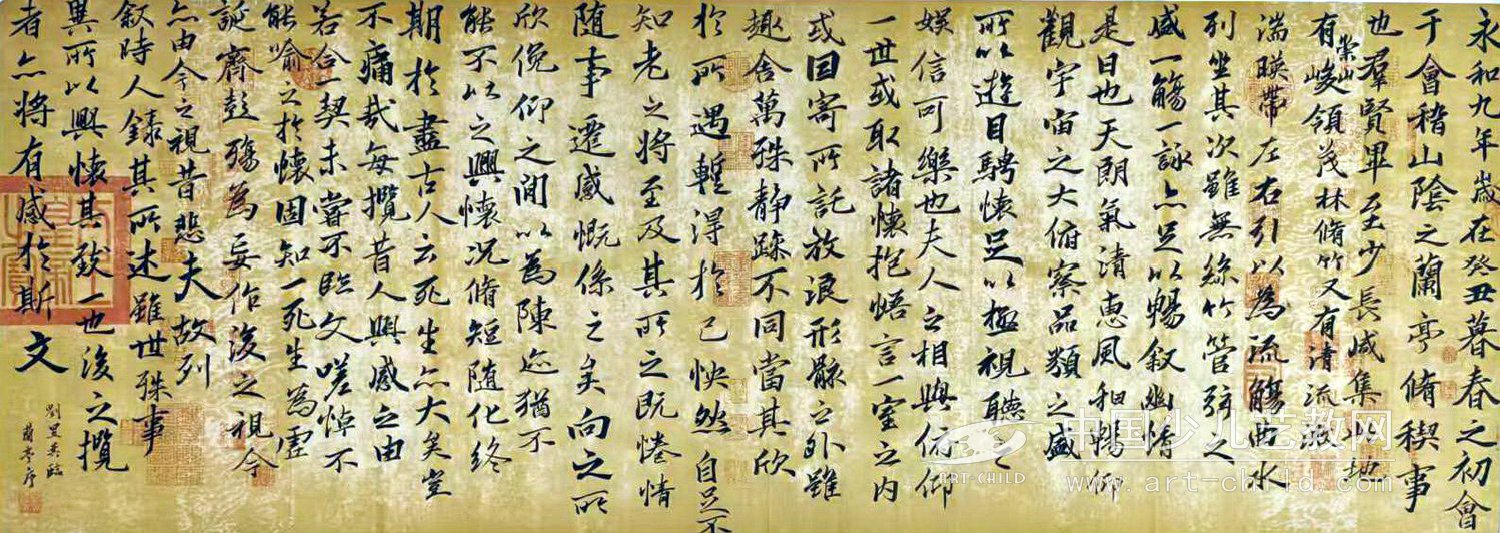 永和九年歲在癸丑暮春之初會
于會稽山陰之蘭亭脩稧事
也羣賢畢至少長咸集此地
有崇山峻領茂林脩竹又有清流激
湍暎帶左右引以為流觴曲水
列坐其次雖無絲竹管弦之
盛一觴一詠亦足以暢叙幽情
是日也天朗氣清惠風和暢仰
觀宇宙之大俯察品類之盛
所以遊目騁懷足以極視聽之
娛信可樂也夫人之相與俯仰
一世或取諸懷抱悟言一室之內
或因寄所託放浪形骸之外雖
趣舍萬殊静躁不同當其欣
於所遇暫得於己怏然自足不
知老之將至及其所之既惓情
随事遷感慨係之矣向之所
欣俛仰之閒以為陳迹猶不
能不以之興懷況脩短随化終
期於盡古人云死生亦大矣豈
不痛哉每攬昔人興感之由
若合一契未嘗不臨文嗟悼不
能喻之於懷固知一死生為虛
誕齊彭殤為妄作後之視今
亦由今之視昔悲夫故列
叙時人錄其所述雖世殊事
異所以興懷其致一也後之攬
者亦將有感於斯文
臨
蘭亭序
中国少儿艺教网
ART-CHILD
www.art-child.com